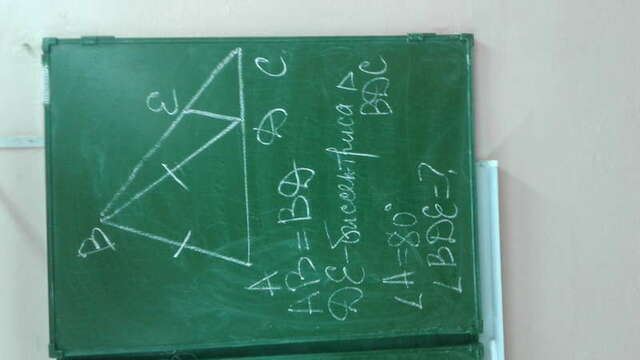 B
E
A
D
C
AB=BD
DE-биссектриса △
BDC
∠A=80°
∠BDE=?